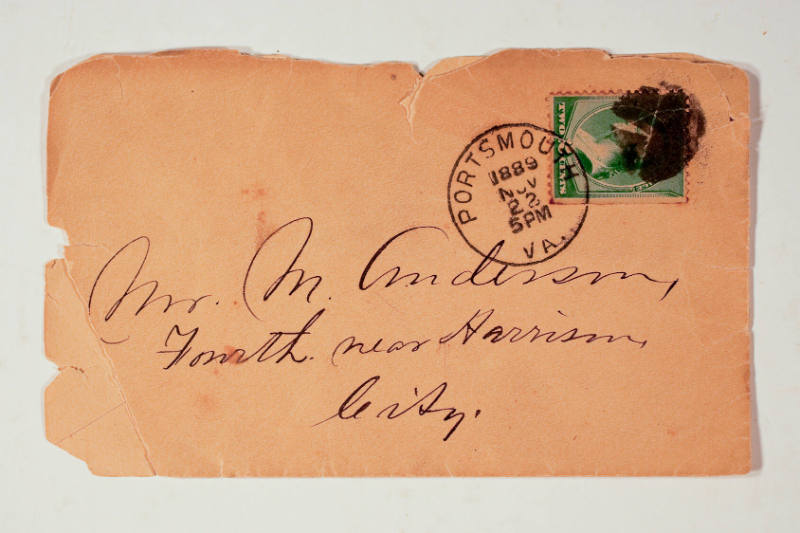 TWO CENTS
PORTSMOUTH
1889
NOV
22
5PM
VA.
Mr. M. Anderson,
Fourth. near Harrison,
City.